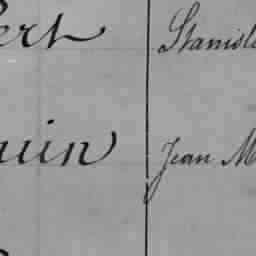 ert Stanisl
uin Jean M